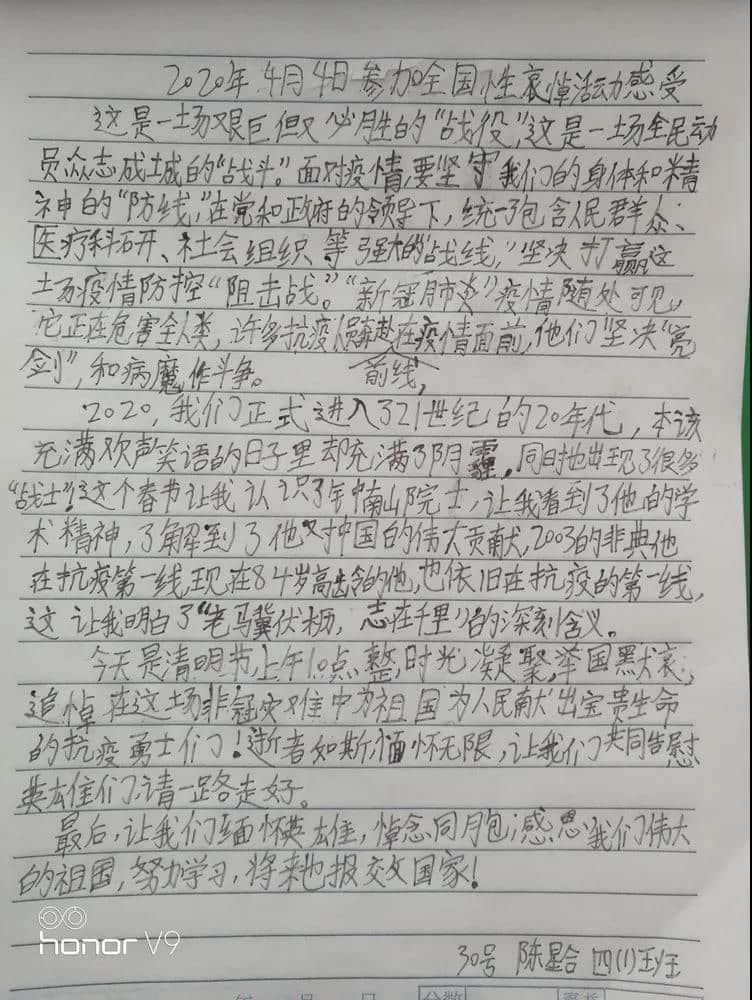 2020年4月4日参加全国性哀悼活动感受
这是一场艰巨但又必胜的“战役”,这是一场全民动
员众志成城的“战斗”。面对疫情,要坚守我们的身体和精
神的“防线”,在党和政府的领导下,统一了包含人民群众、
医疗科研、社会组织等强大的“战线”,坚决打赢这
场疫情防控“阻击战”。“新冠肺炎”疫情随处可见,
它正在危害全人类,许多抗疫人员奔赴在疫情面前,他们坚决“亮
剑”,和病魔作斗争。
前线,
2020,我们正式进入了21世纪的20年代,本该
充满欢声笑语的日子里却充满了阴霾,同时也出现了很多
“战士”!这个春节让我认识了钟南山院士,让我看到了他的学
术精神,了解到了他对中国的伟大贡献,2003的非典他
在抗疫第一线,现在84岁高龄的他,也依旧在抗疫的第一线,
这让我明白了“老马冀伏枥,志在千里”的深刻含义。
今天是清明节上午10点整,时光凝聚,举国默哀,
追悼在这场非冠灾难中为祖国为人民献出宝贵生命
的抗疫勇士们!逝者如斯,缅怀无限,让我们共同告慰
英雄们,请一路走好。
最后,让我们缅怀英雄,悼念同胞,感恩我们伟大
的祖国,努力学习,将来也报效国家!
30号 陈星合 四(1)班
honor V9
分数